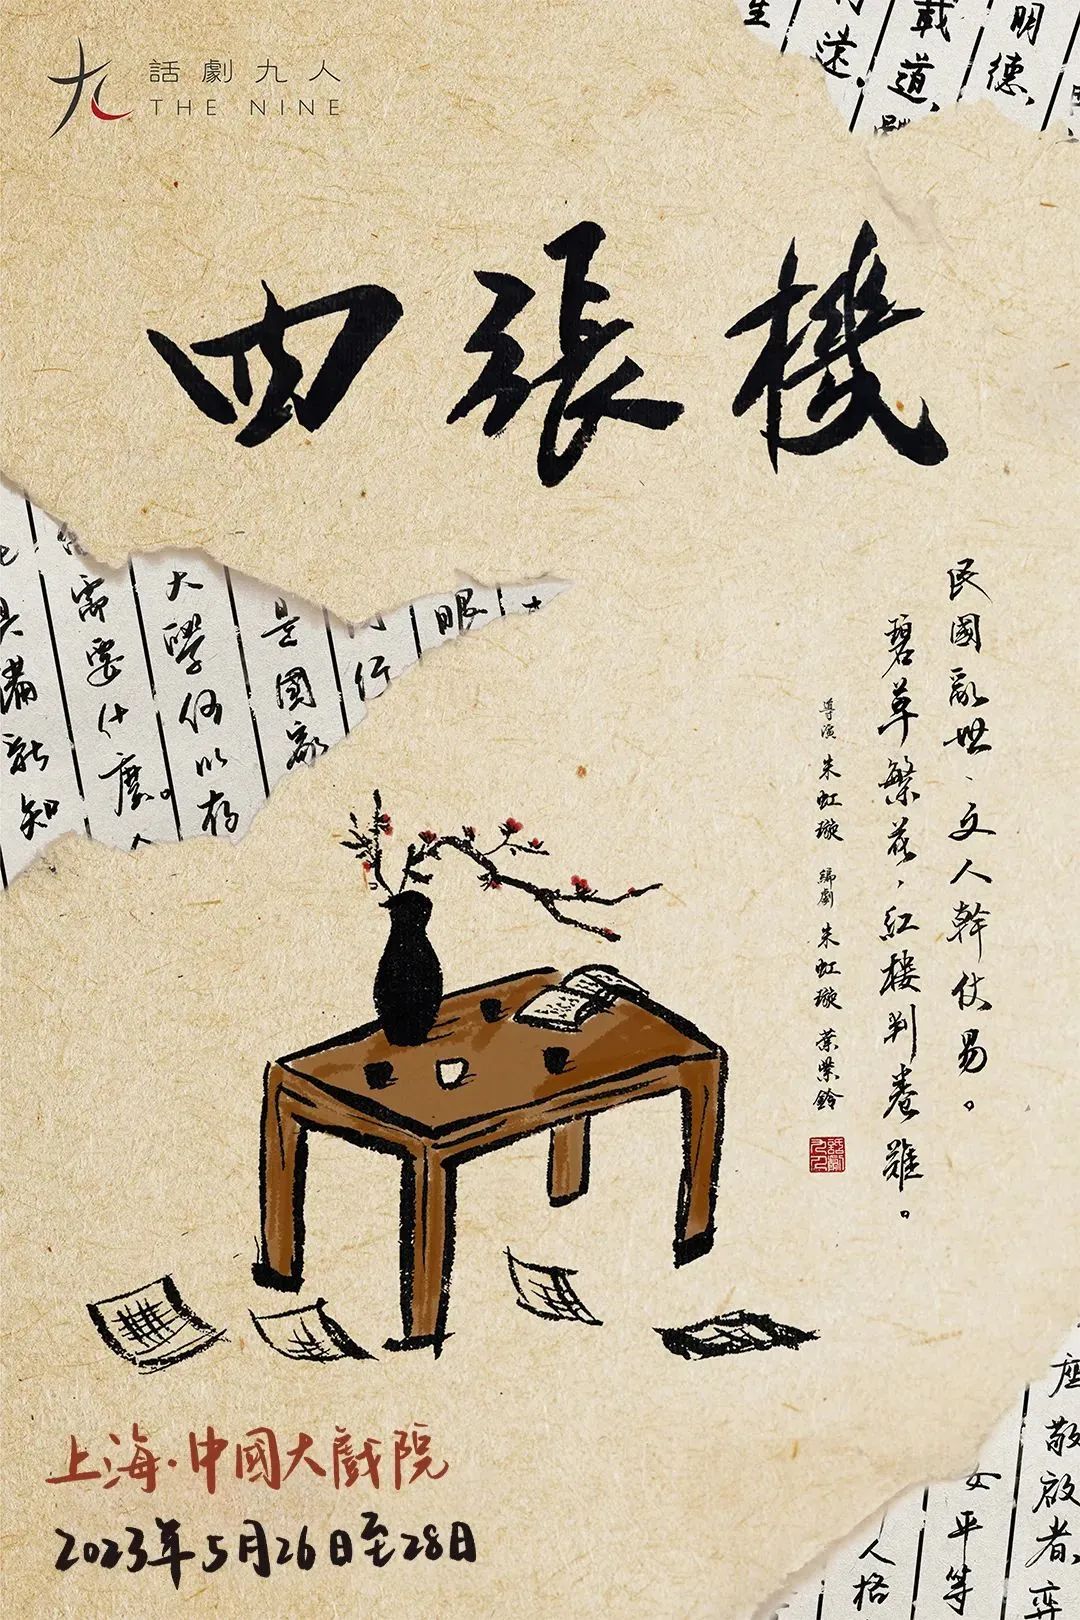 話劇九人
THE NINE
四張機
民國亂世、文人幹仗易。
碧草繁花，紅樓判卷難。
導演 朱虹璇 編劇 朱虹璇 葉紫鈴
話劇九人
明德，
載道，
遠。
眼
行
是國家
大學何以存
需要什麼。
具備新知
座敬
啟者，弈
女平等
人格
上海·中國大戲院
2023年5月26日至28日